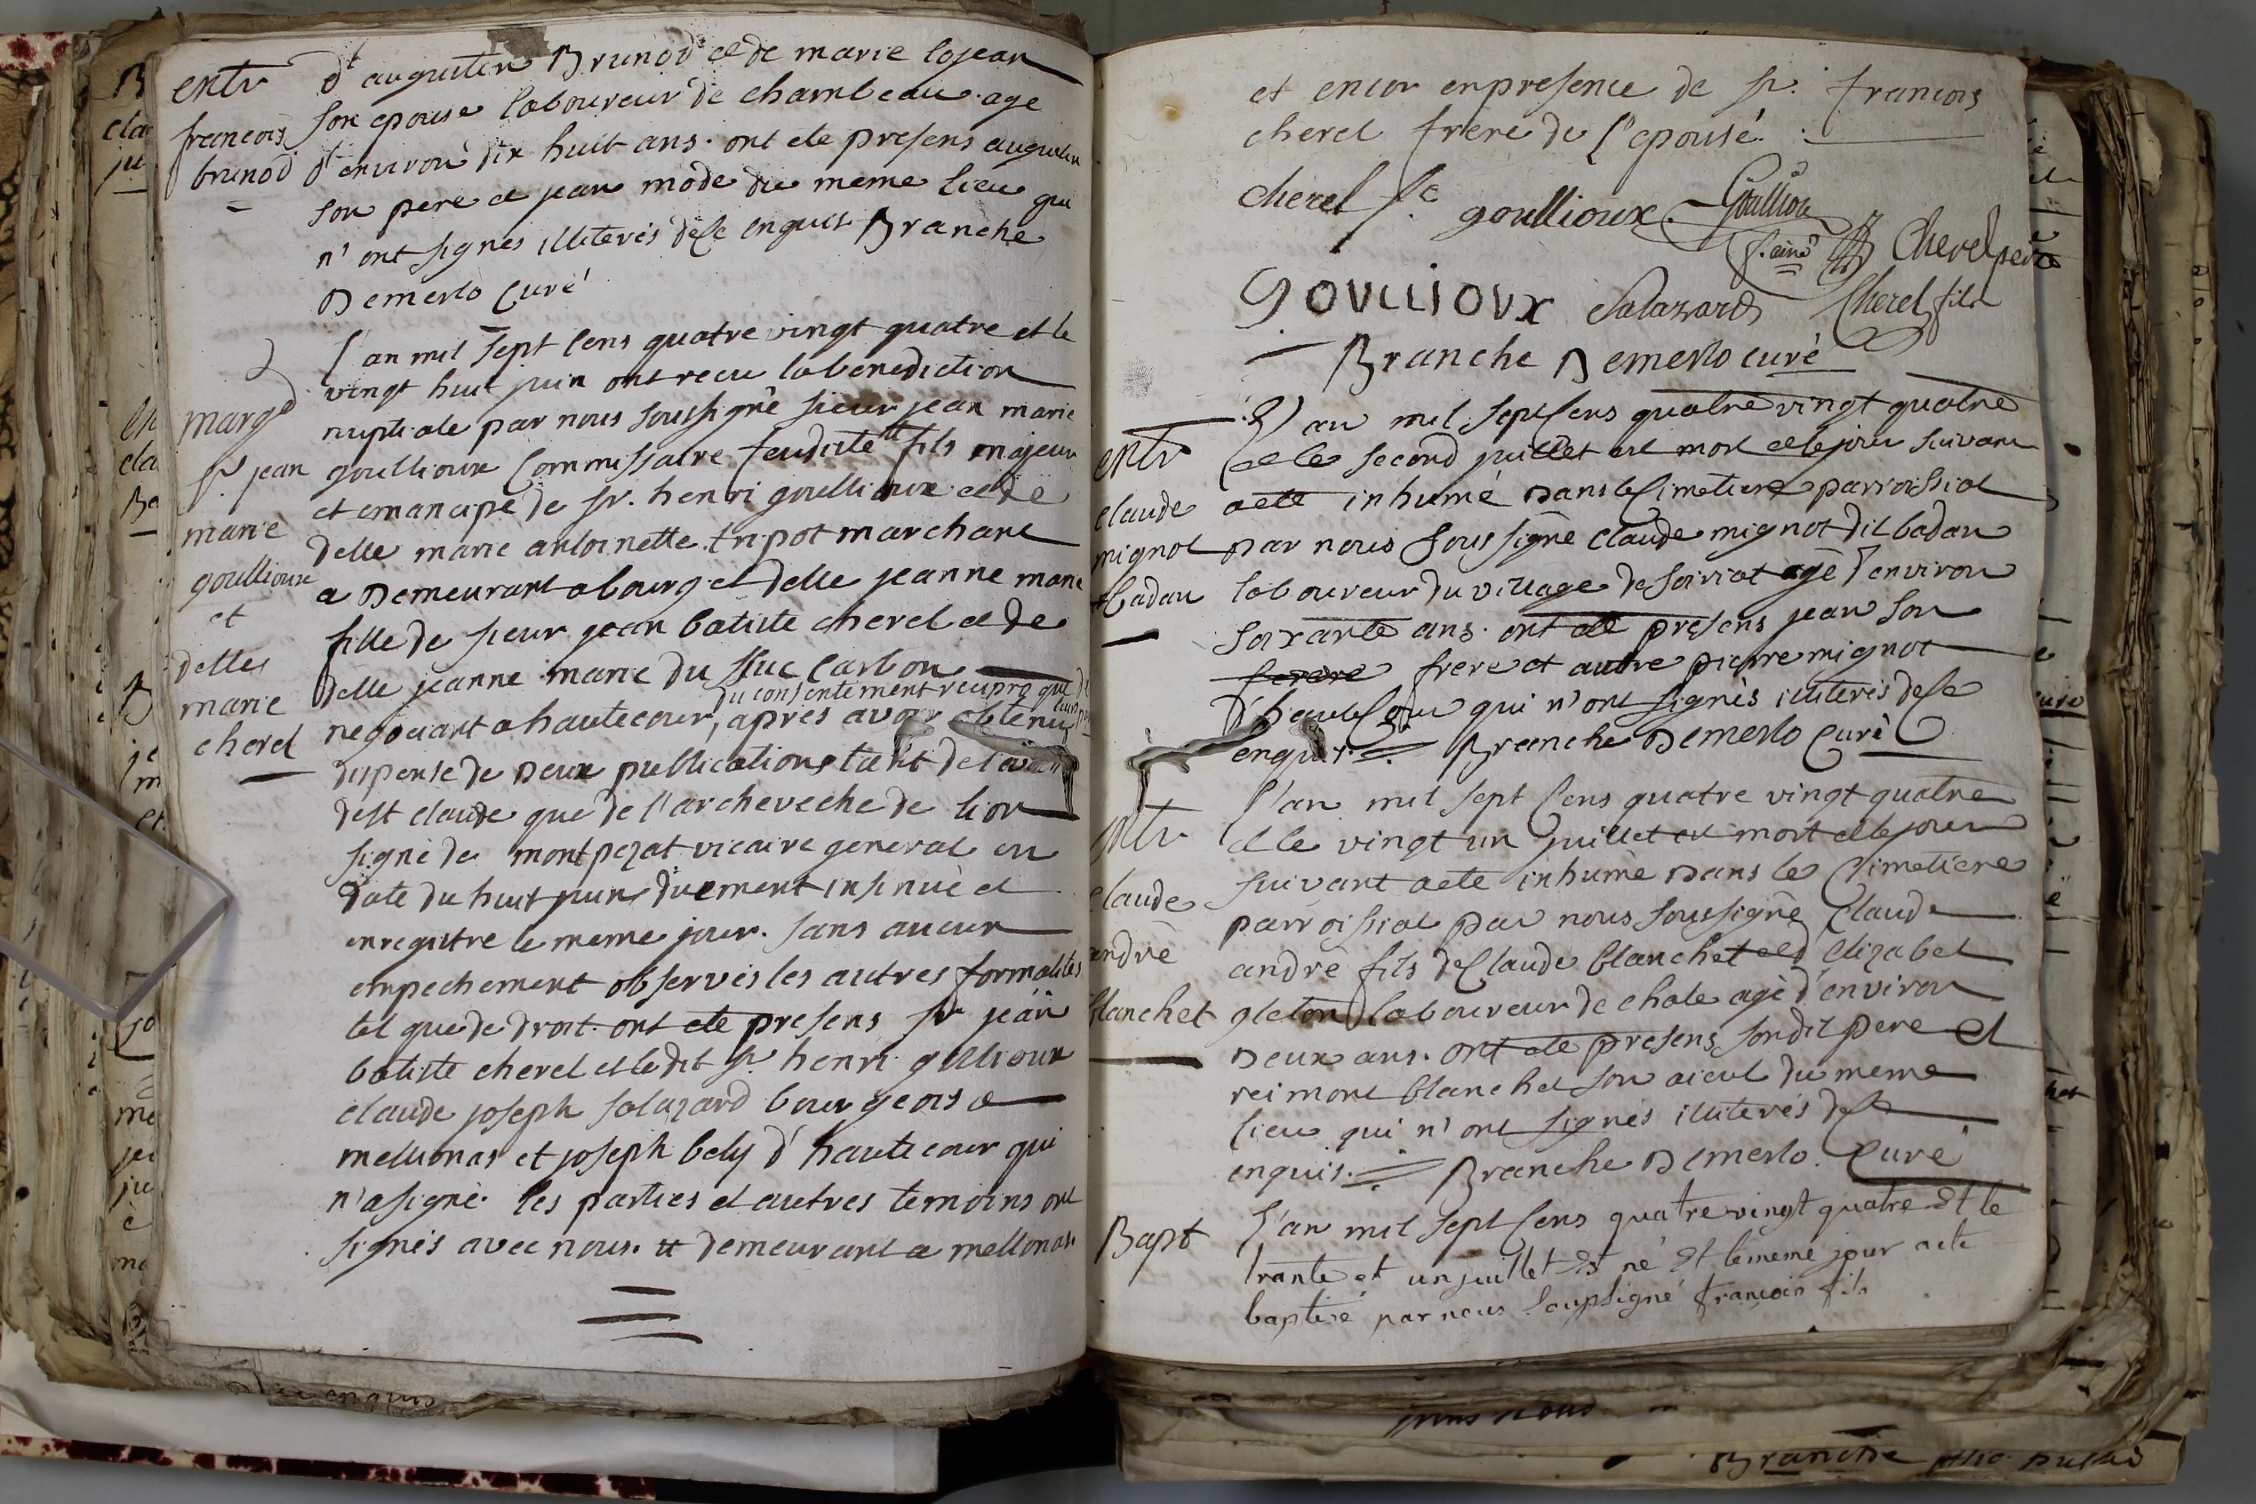 entr
francois
brunod
d'augustin Brunod et de marie lojean
son epouse laboureur de chambeau. age
d'environ dix huit ans. ont ete presens augustin
son pere et jean mode du meme lieu qui
n'ont signes illiterés de ce enquis Branche
Demerlo curé
marge
sr. jean
marie
goullioux
et
delles
marie
cherel
l'an mil sept cens quatre vingt quatre et le
vingt huit juin ont recu la benediction
nuptiale par nous soussigné sieur jean marie
goullioux commissaire feudiste fils majeur
et emancipé de sr. henri goullioux et de
delle marie antoinette tripot marchant
a demeurant a bourg et delle jeanne marie
fille de sieur jean batiste cherel et de
delle jeanne marie du suc carbon
du consentement reciproque de
negociant a hautecour, apres avoir obtenu
dispense de deux publications tant de
de st claude que de l'archeveche de lion
signé de montpezat vicaire general en
date du huit juin duement insinué et
enregistre le meme jour. sans aucun
empechement observés les autres formalites
tel que de droit. ont ete presens sr jean
batiste cherel et le dit sr. henri gullioux
claude joseph salazard bourgeois a
mellionas et joseph bely d'hautecour qui
n'a signé. les parties et autres temoins ont
signés avec nous. tt demeurant a mellonas.
et encor en presence de sr. francois
cherel frere de l'epouse.
cherel fe goullioux Goullioux
f. ainé Cherel pere
goullioux Salazard Cherel fils
Branche Demerlo curé
entr
claude
mignot
badau
L'an mil sept cens quatre vingt quatre
et le second juillet est mort et le jour suivant
a ete inhumé dans le cimetiere parroissial
par nous soussigné claude mignot dit badau
laboureur du village de soiriat agé d'environ
soixante ans. ont ete presens jean son
frere et autre pierre mignot
d'hautecour qui n'ont signés illiterés de ce
enquis. Branche Demerlo curé
entr
claude
andré
blanchet
l'an mil sept cens quatre vingt quatre
et le vingt un juillet est mort et le jour
suivant a ete inhumé dans le cimetiere
parroissial par nous soussigné claude
andré fils de claude blanchet et d'elizabet
gleton laboureur de chale agé d'environ
deux ans. ont ete presens son dit pere et
reimont blanchet son aieul du meme
lieu qui n'ont signés illiterés de ce
enquis. Branche Demerlo. Curé
Bapt
L'an mil sept cens quatre vingt quatre Et le
trante et un juillet Est né Et le meme jour a ete
baptisé par nous soupsigné françois fils